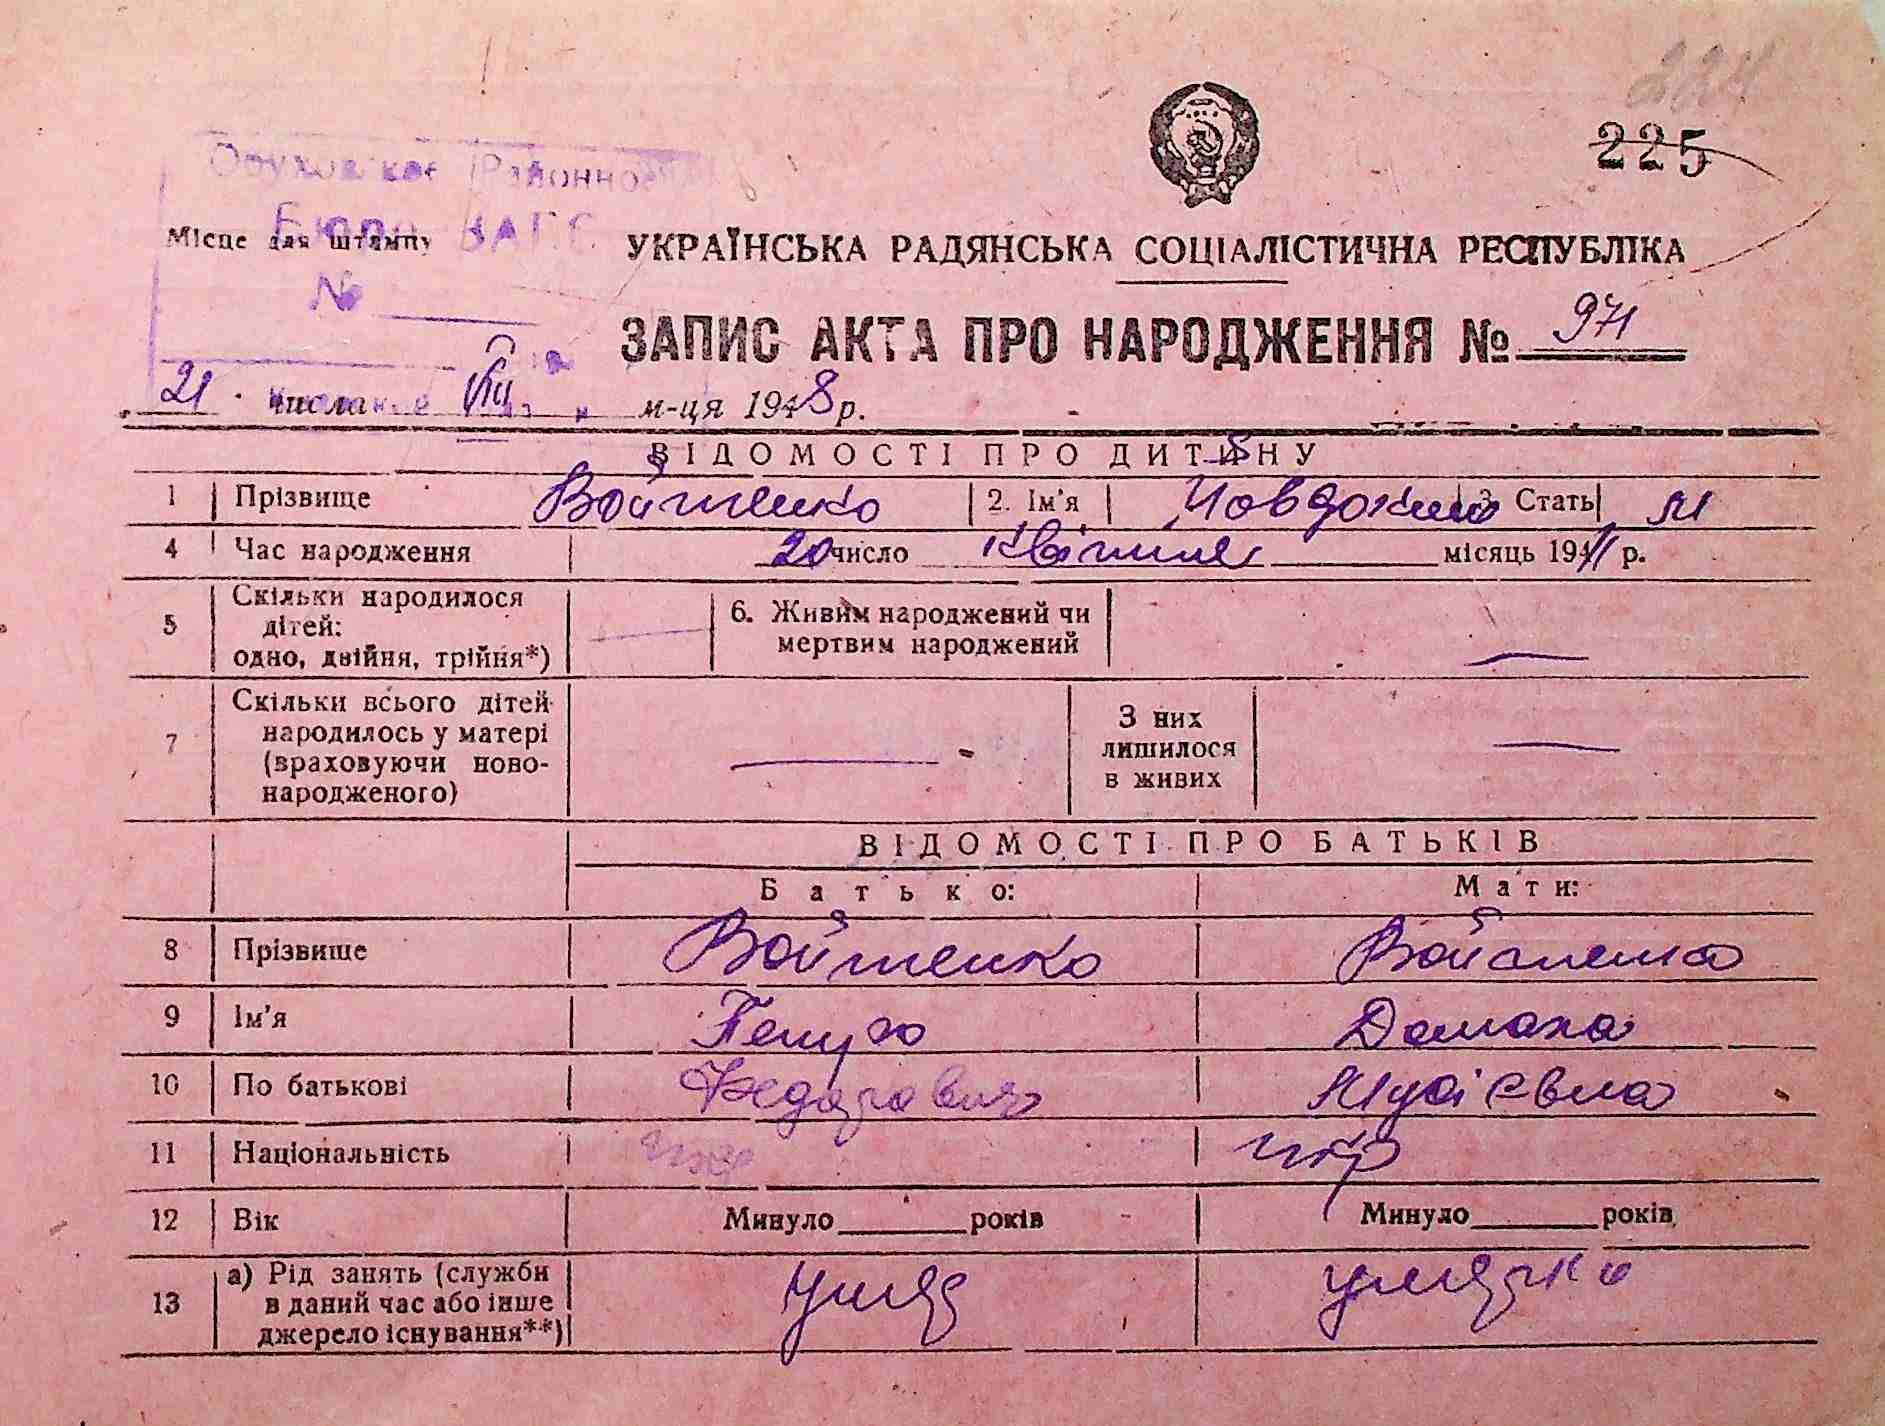 224
225
Районное
Бюро ЗАГС
Місце для штампу
№
УКРАЇНСЬКА РАДЯНСЬКА СОЦІАЛІСТИЧНА РЕСПУБЛІКА
ЗАПИС АКТА ПРО НАРОДЖЕННЯ № 971
21 числа VIII м-ця 1948 р.
ВІДОМОСТІ ПРО ДИТИНУ
1 Прізвище Войтенко 2. Ім'я 3. Стать
4 Час народження 20 число квітня місяць 19 р.
5 Скільки народилося
дітей:
одно, двійня, трійня*)
6. Живим народжений чи
мертвим народжений
7 Скільки всього дітей
народилось у матері
(враховуючи ново-
народженого)
З них
лишилося
в живих
ВІДОМОСТІ ПРО БАТЬКІВ
Батько: Мати:
8 Прізвище Войтенко Войтенко
9 Ім'я Домаха
10 По батькові Федорович
11 Національність укр
12 Вік Минуло років Минуло років
13 а) Рід занять (служби
в даний час або інше
джерело існування**)